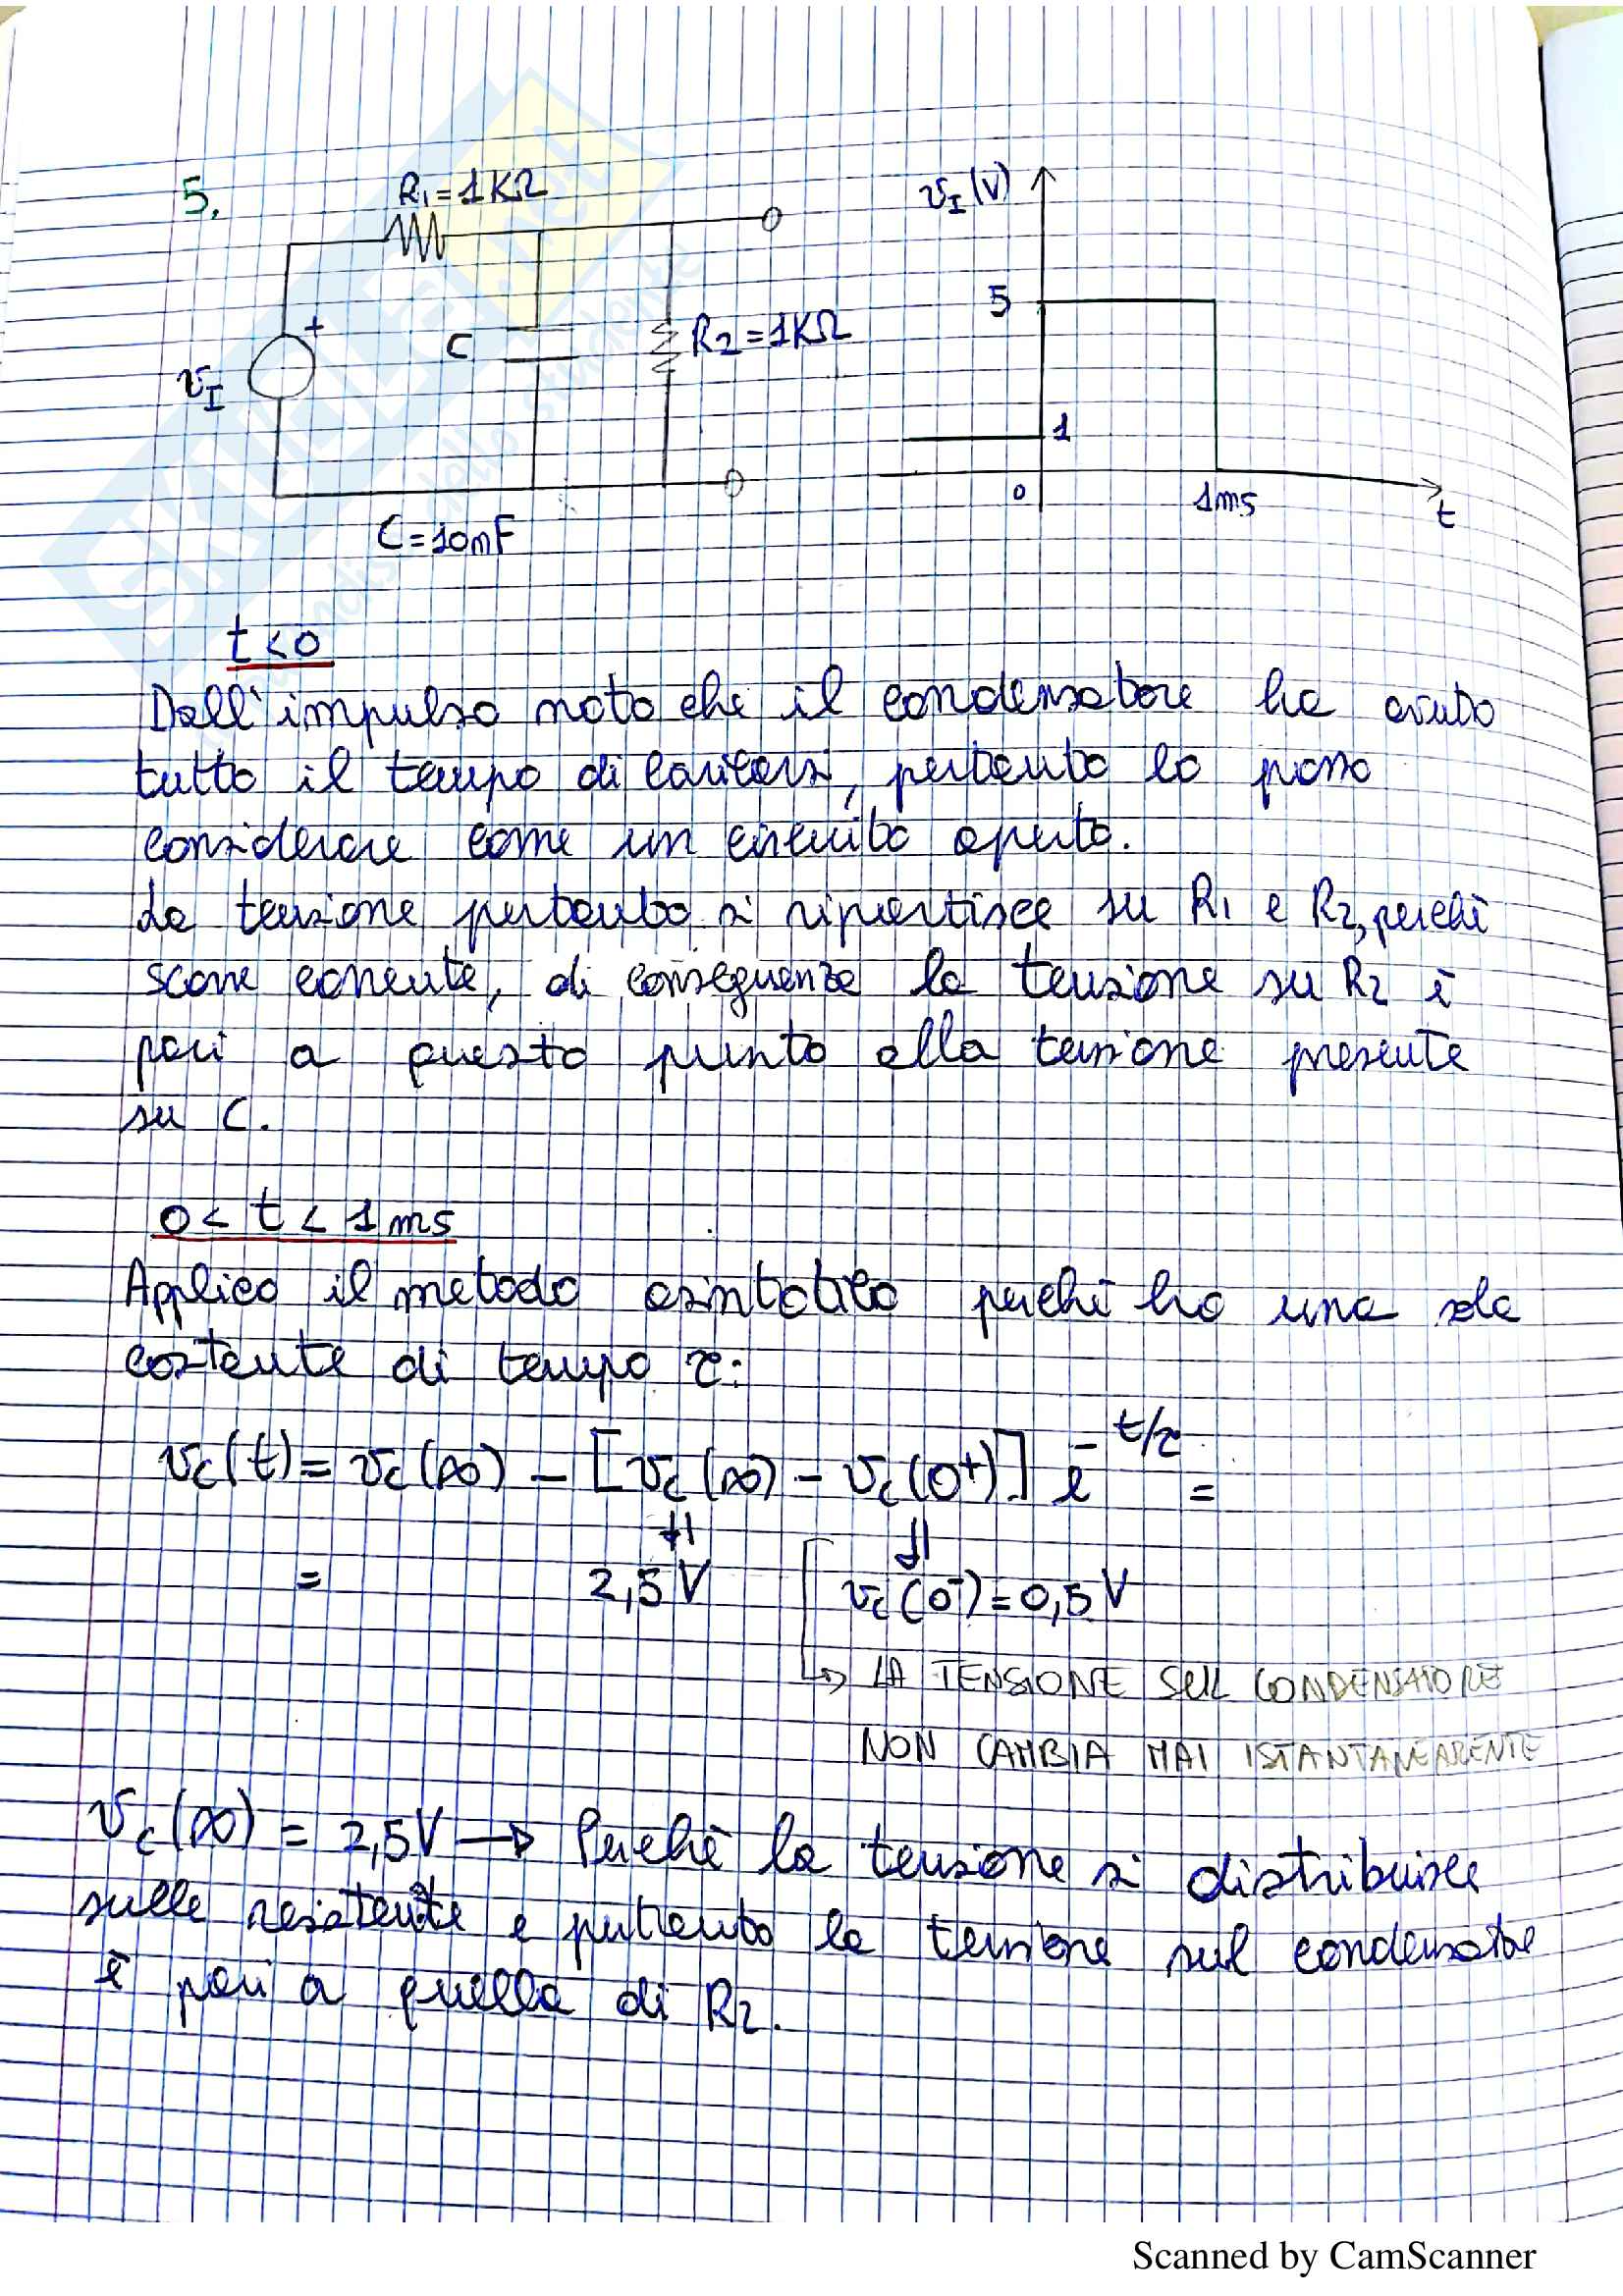 5.
R1=1KΩ
vI(V)
5
+
C
R2=1KΩ
vI
1
0
1ms
t
C=10nF
t<0
Dall'impulso noto che il condensatore ha avuto
tutto il tempo di caricarsi, pertanto lo posso
considerare come un circuito aperto.
La tensione pertanto si ripartisce su R1 e R2, perchè
scorre corrente, di conseguenza la tensione su R2 è
pari a questo punto alla tensione presente
su C.
0 < t < 1ms
Applico il metodo asintotico perchè ho una sola
costante di tempo τ:
vc(t) = vc(∞) - [vc(∞) - vc(0+)] e^-t/τ =
= 2,5V vc(0-) = 0,5V
↳ LA TENSIONE SUL CONDENSATORE
NON CAMBIA MAI ISTANTANEAMENTE
vc(∞) = 2,5V → Perchè la tensione si distribuisce
sulle resistenze e pertanto la tensione sul condensatore
è pari a quella di R2.
SKUOLA.net
dello studente
Scanned by CamScanner